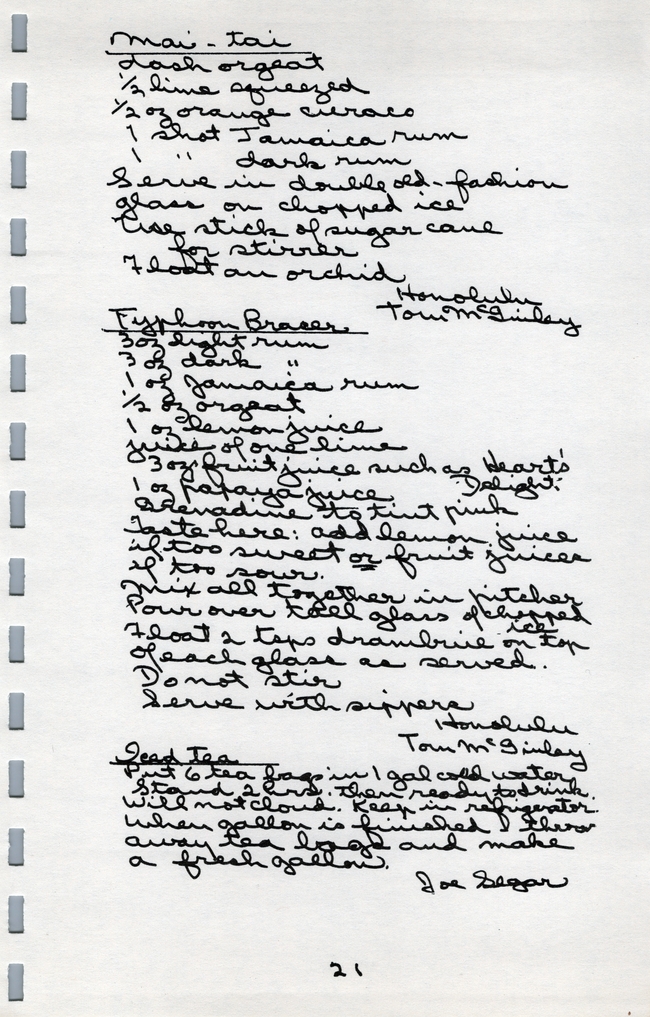 Mai-tai
dash orgeat
1/2 lime squeezed
1/2 oz orange curaco
1 shot Jamaica rum
1 " dark rum
Serve in double old-fashion
glass on chopped ice
Use stick of sugar cane
for stirrer
Float an orchid
Honolulu
Tom McGinley
Typhoon Bracer
3 oz light rum
3 oz dark "
1 oz Jamaica rum
1/2 oz orgeat
1 oz lemon juice
juice of one lime
3 oz fruit juice such as Heart's
Delight.
1 oz papaya juice
Grenadine to tint pink
Taste here: add lemon juice
if too sweet or fruit juices
if too sour.
Mix all together in pitcher
Pour over tall glass of chopped
ice
Float 2 tsps drambuie on top
of each glass as served.
Do not stir
Serve with sippers
Honolulu
Tom McGinley
Iced tea
Put 6 tea bags in 1 gal cold water
Stand 2 hrs. then ready to drink.
Will not cloud. Keep in refrigerator.
When gallon is finished I throw
away tea bags and make
a fresh gallon.
Joe Segar
21